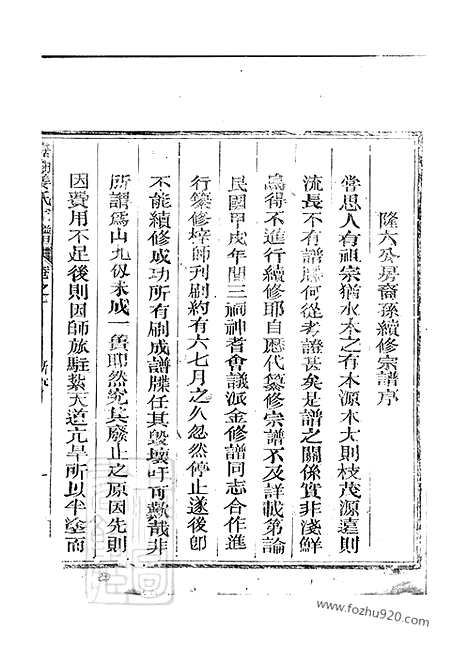 隆六公房裔孫續修宗譜序
嘗思人有祖宗猶水木之有本源木大則枝茂源遠則
流長不有譜牒何從考證甚矣是譜之關係實非淺鮮
為得不進行續修耶自歷代纂修宗譜不及詳載第論
民國甲戌年間三祠紳耆會議派金修譜同志合作進
行纂修梓師刋刷約有六七月之久忽然停止遂後卽
不能續修成功所有刷成譜牒任其毀壞吁可歎哉非
所謂為山九仞未成一簣卽然究其廢止之原因先則
因費用不足後則因師旅駐紮天道亢旱所以半塗而
姜氏宗譜 卷之一
www.fozhu920.com